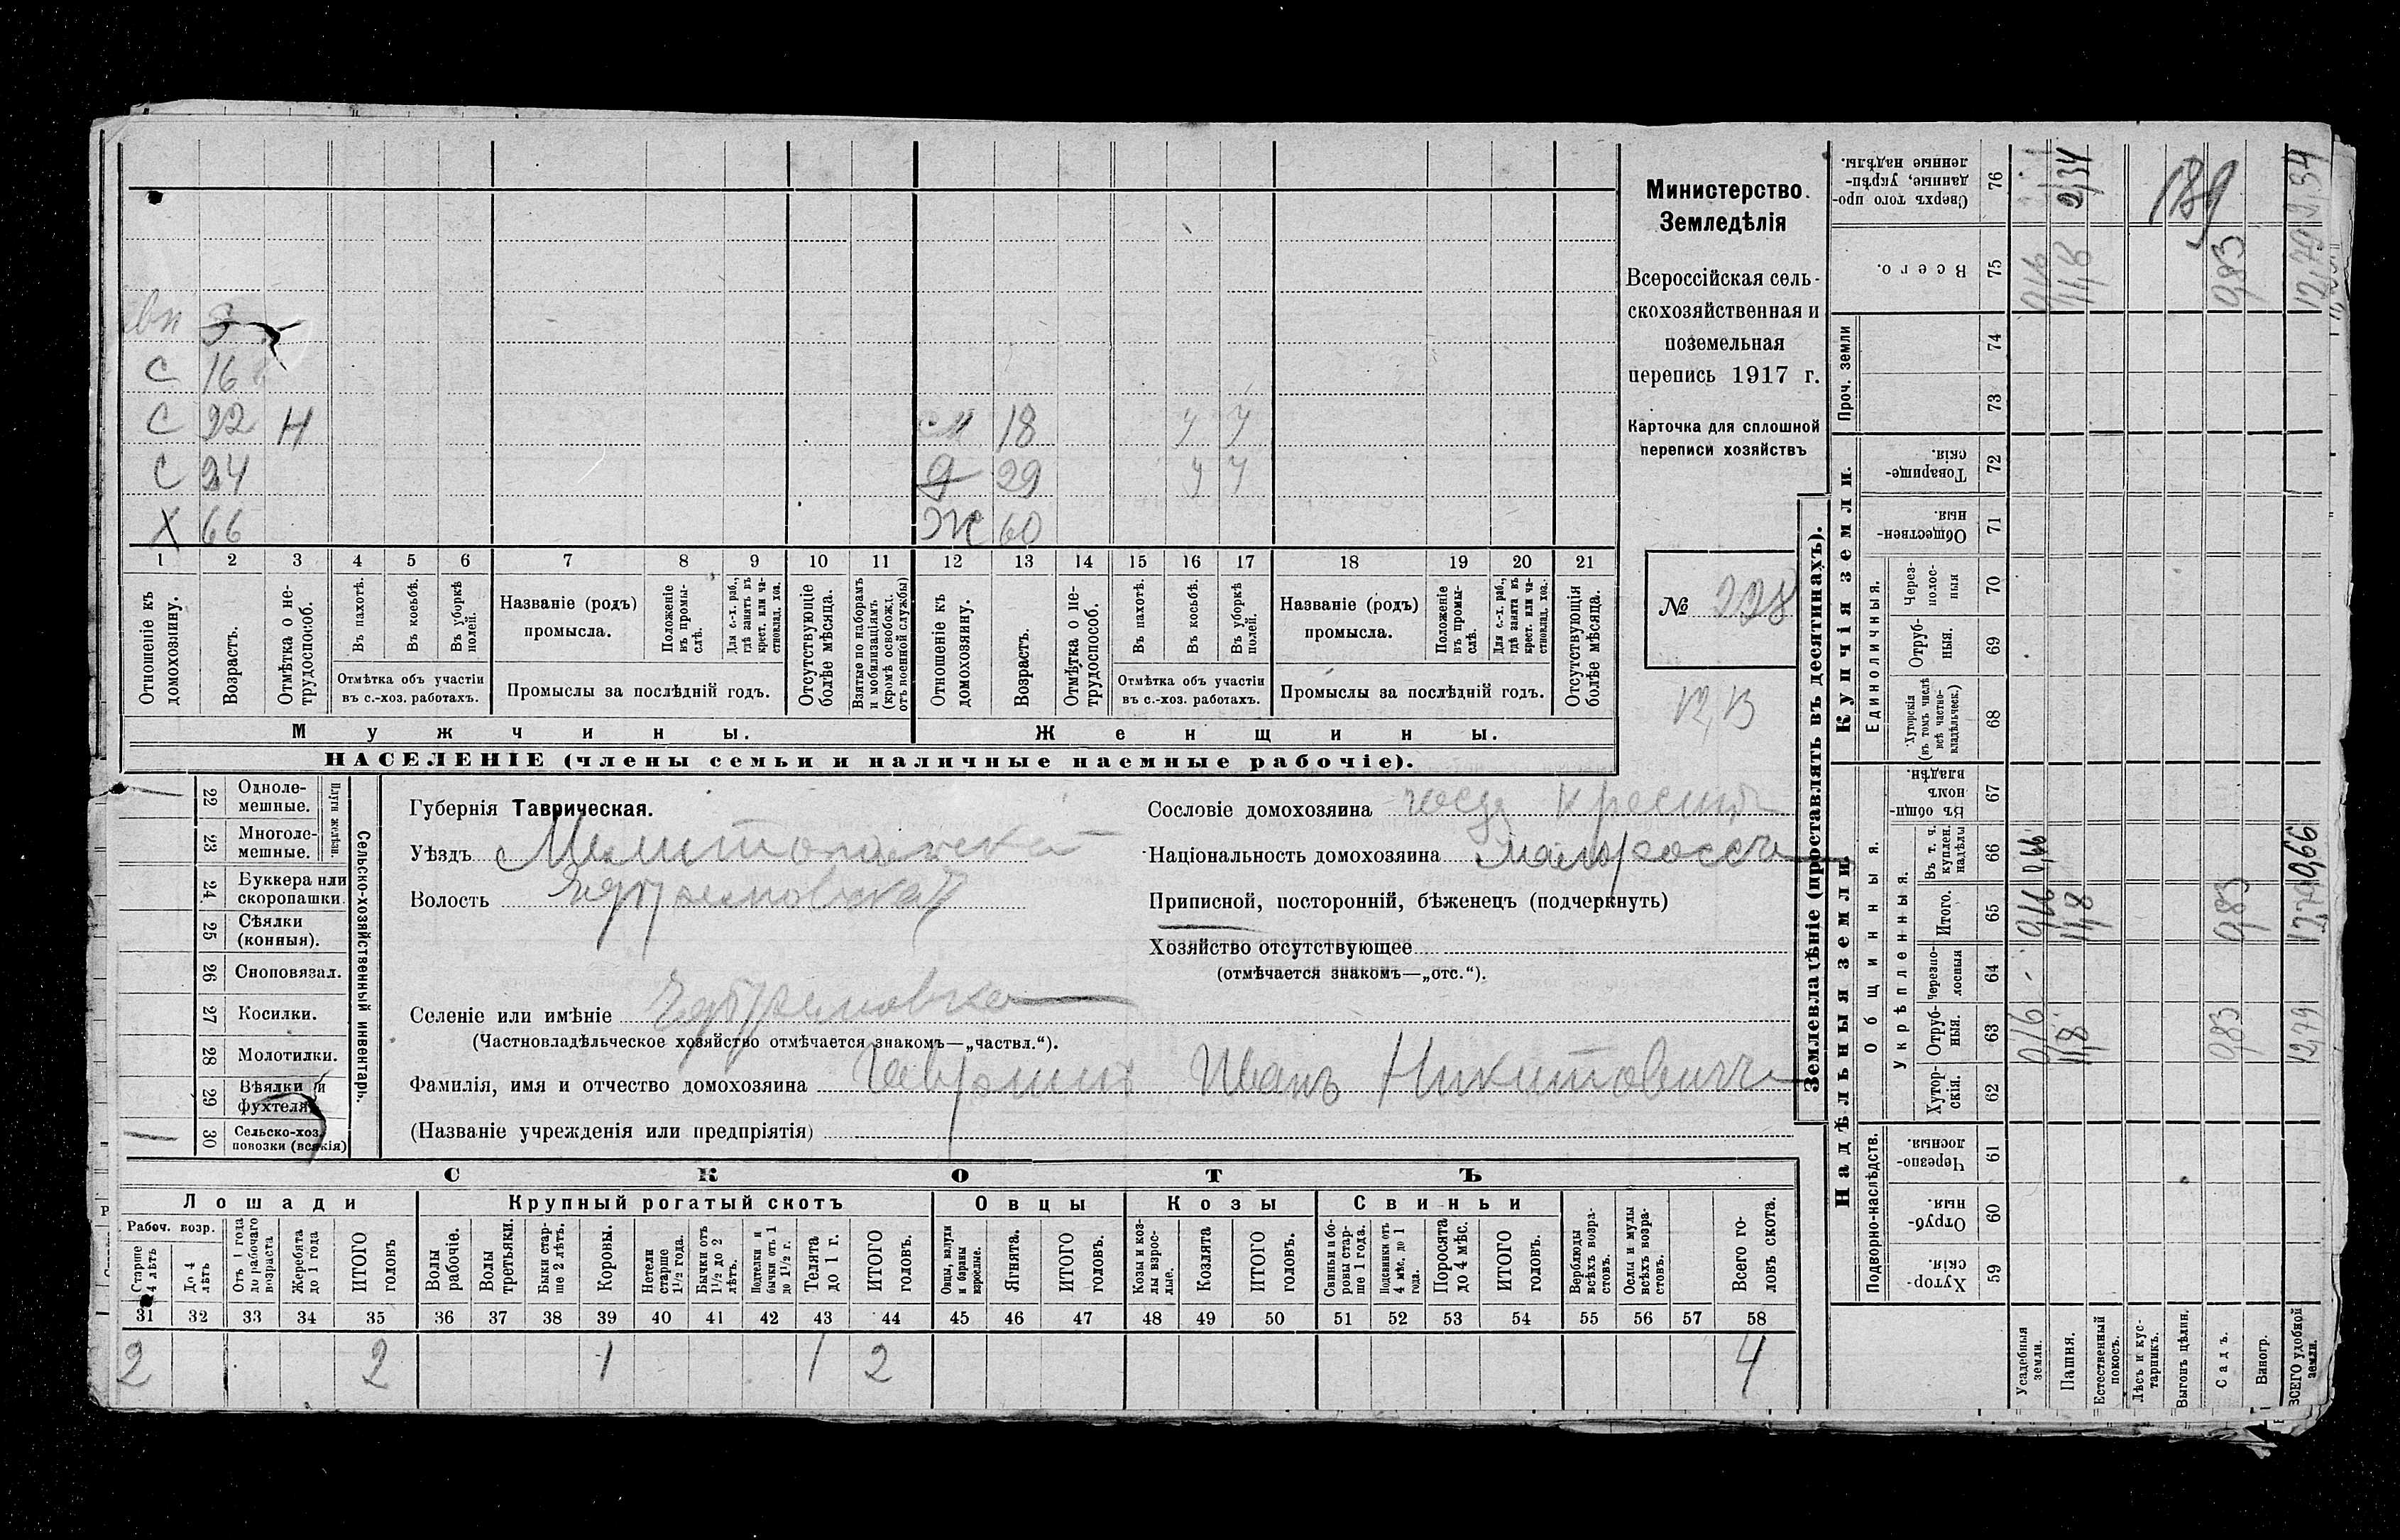 Министерство
Земледѣлія
Всероссійская сель-
скохозяйственная и
поземельная
перепись 1917 г.
Карточка для сплошной
переписи хозяйствъ
№ 228
12,13
С 16
С 22 Н
18 У У
С 24
29 У У
Х 66
Ж 60
1 2 3 4 5 6 7 8 9 10 11 12 13 14 15 16 17 18 19 20 21
Отношеніе къ домохозяину.
Возрастъ.
Отмѣтка о не-трудоспособ.
Въ пахотѣ.
Въ косьбѣ.
Въ уборкѣ полей.
Отмѣтка объ участіи въ с.-хоз. работахъ.
Названіе (родъ) промысла.
Положеніе въ промы-слѣ.
Для с.-х. раб., гдѣ занятъ въ крест. или ча-стновлад. хоз.
Промыслы за послѣдній годъ.
Отсутствующіе болѣе мѣсяца.
Взятые по наборамъ и мобилизаціямъ (кромѣ освобожд. отъ военной службы)
Отношеніе къ домохозяину.
Возрастъ.
Отмѣтка о не-трудоспособ.
Въ пахотѣ.
Въ косьбѣ.
Въ уборкѣ полей.
Отмѣтка объ участіи въ с.-хоз. работахъ.
Названіе (родъ) промысла.
Положеніе въ промы-слѣ.
Для с.-х. раб., гдѣ занята въ крест. или ча-стновлад. хоз.
Промыслы за послѣдній годъ.
Отсутствующія болѣе мѣсяца.
Мужчины.
Женщины.
НАСЕЛЕНІЕ (члены семьи и наличные наемные рабочіе).
22 Одноле-мешные.
23 Многоле-мешные.
Плуги желѣзн.
24 Буккера или скоропашки.
25 Сѣялки (конныя).
26 Сноповязал.
27 Косилки.
28 Молотилки.
29 Вѣялки и фухтеля.
30 Сельско-хоз. повозки (всякія)
Сельско-хозяйственный инвентарь.
Губернія Таврическая.
Уѣздъ Мелитопольской
Волость
Селеніе или имѣніе
(Частновладѣльческое хозяйство отмѣчается знакомъ—„частвл.“).
Фамилія, имя и отчество домохозяина Гавришъ Иванъ Никитовичъ
(Названіе учрежденія или предпріятія)
Сословіе домохозяина
Національность домохозяина малороссъ
Приписной, посторонній, бѣженецъ (подчеркнуть)
Хозяйство отсутствующее
(отмѣчается знакомъ—„отс.“).
СКОТЪ
Лошади
Крупный рогатый скотъ
Овцы
Козы
Свиньи
Рабоч. возр.
Старше 4 лѣтъ
До 4 лѣтъ
Отъ 1 года до рабочаго возраста
Жеребята до 1 года
ИТОГО головъ
Волы рабочіе.
Волы третьяки.
Быки стар-ше 2 лѣтъ.
Коровы.
Нетели старше 1½ года.
Бычки отъ 1½ до 2 лѣтъ.
Подтелки и бычки отъ 1 до 1½ г.
Телята до 1 г.
ИТОГО головъ.
Овцы, валухи и бараны взрослые.
Ягнята.
ИТОГО головъ.
Козы и коз-лы взрос-лые.
Козлята
ИТОГО головъ.
Свиньи и бо-ровы стар-ше 1 года.
Подсвинки отъ 4 мѣс. до 1 года.
Поросята до 4 мѣс.
ИТОГО головъ.
Верблюды всѣхъ возра-стовъ.
Ослы и мулы всѣхъ возра-стовъ.
Всего го-ловъ скота.
31 32 33 34 35 36 37 38 39 40 41 42 43 44 45 46 47 48 49 50 51 52 53 54 55 56 57 58
2 2 1 1 2 4
Землевладѣніе (проставлять въ десятинахъ).
Надѣльныя земли.
Купчія земли.
Проч. земли
Подворно-наслѣдств.
Общинныя.
Укрѣпленныя.
Единоличныя.
Хутор-скія. 59
Отруб-ныя. 60
Черезпо-лосныя. 61
Хутор-скія. 62
Отруб-ныя. 63
Черезпо-лосныя 64
Итого. 65
Въ т. ч. куплен. надѣлы 66
Въ общи-номъ владѣн. 67
Хуторскія (въ томъ числѣ всѣ частно-владѣльческ.) 68
Отруб-ныя. 69
Через-полос-ныя 70
Обществен-ныя. 71
Товарище-скія. 72
73
74
Всего. 75
Сверхъ того про-данные, укрѣп-ленные надѣлы. 76
Усадебныя земли.
Пашня. 11,8 11,8 11,8 2,34
Естественный покосъ.
Лѣсъ и кус-тарникъ.
Выгонъ цѣлин.
Садъ. 0,83 0,83 0,83
Виногр.
ВСЕГО удобной земли. 12,79 12,79 0,66 12,79 2,34
189